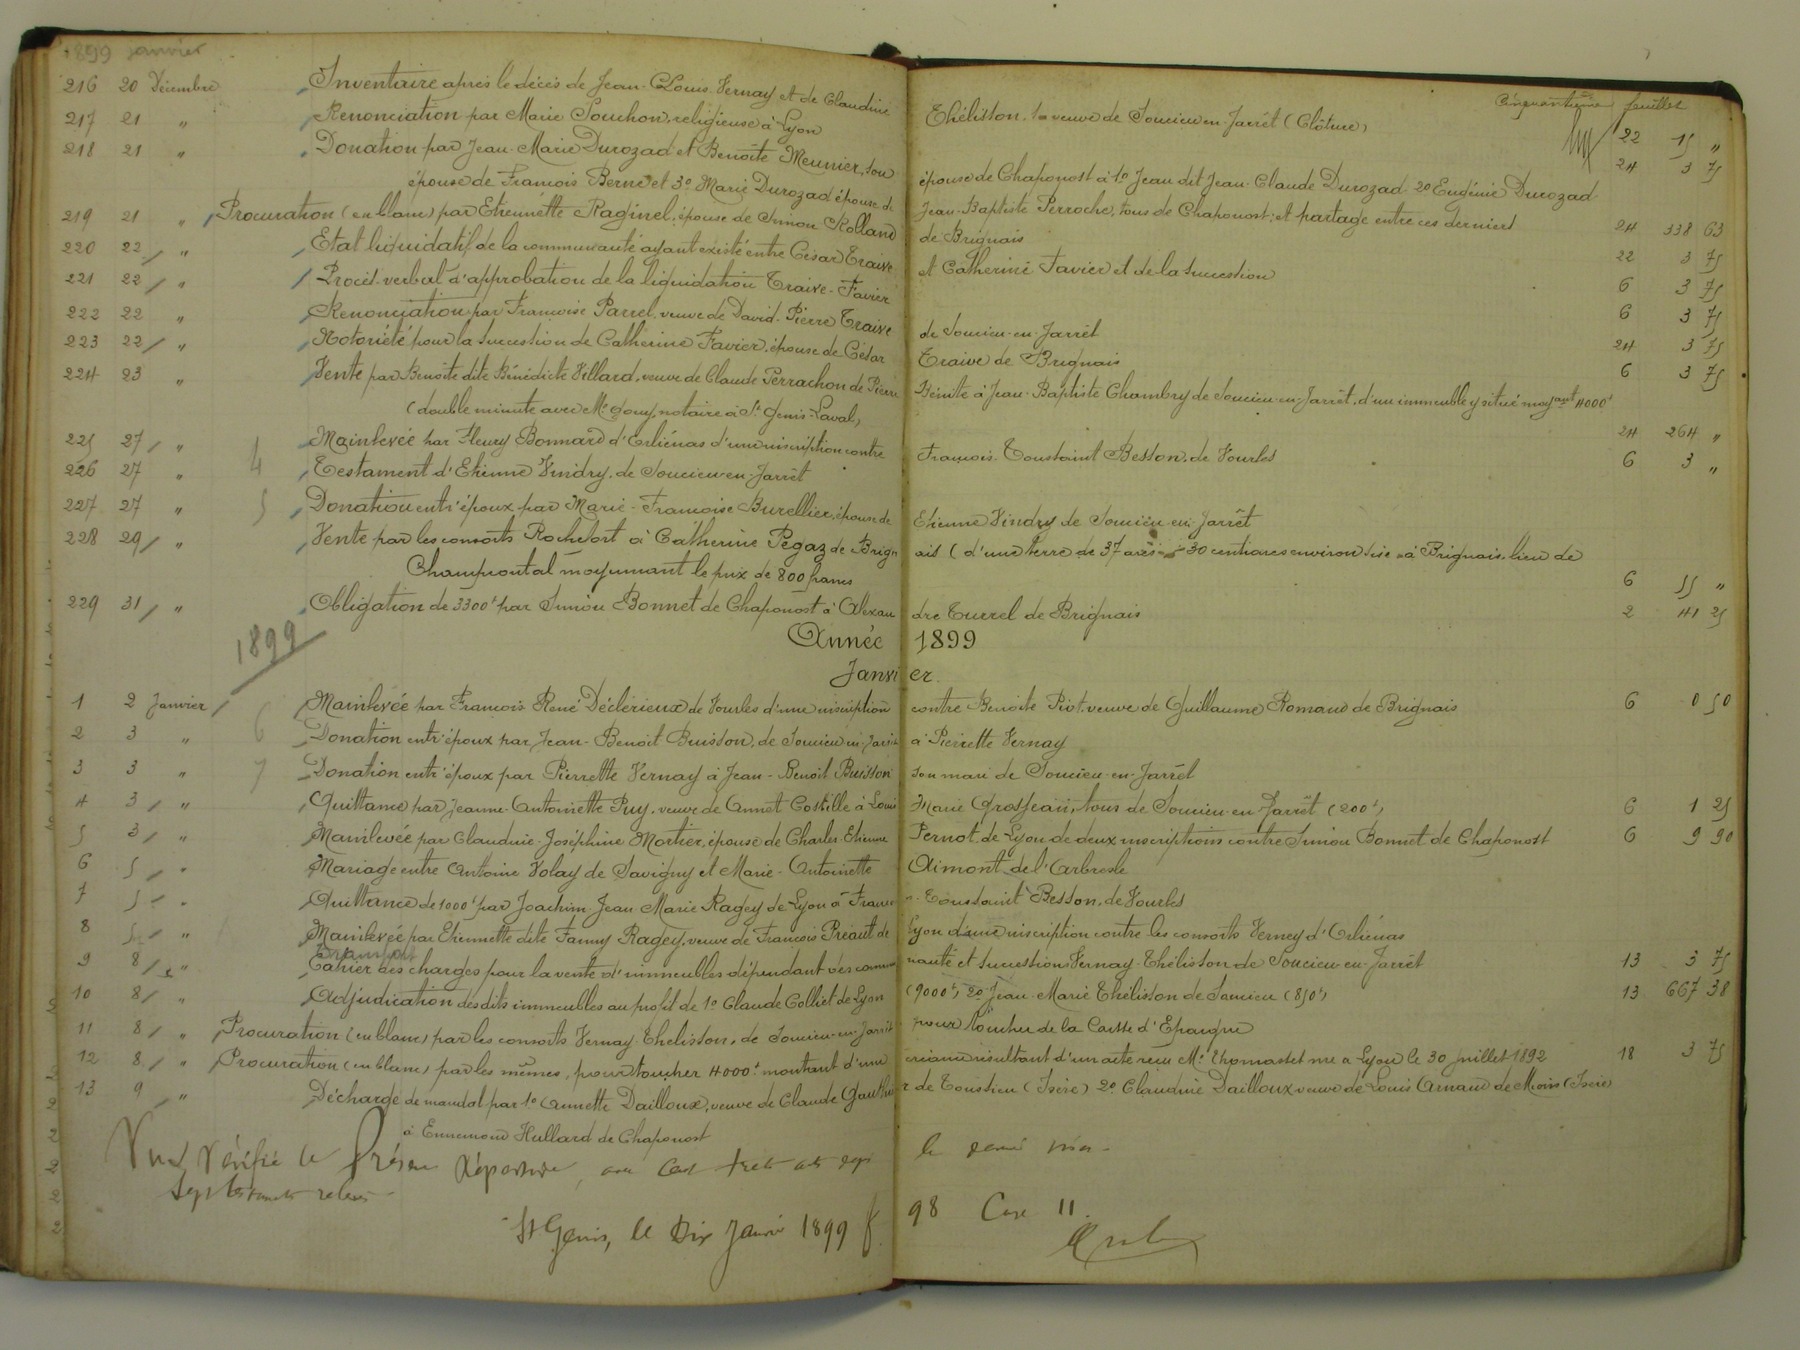 1899 janvier
Cinquantième feuillet
216 20 Décembre Inventaire après le décès de Jean-Louis Vernay et de Claudine Thélisson, sa veuve de Soucieu en Jarrêt (Clôture) 22 15 "
217 21 " Renonciation par Marie Souchon, religieuse à Lyon 24 3 75
218 21 " Donation par Jean-Marie Durozad et Benoîte Meunier, son épouse de Chaponost à 1o Jean dit Jean-Claude Durozad 2o Eugénie Durozad
épouse de François Berne et 3o Marie Durozad épouse de Jean-Baptiste Perroche, tous de Chaponost; et partage entre ces derniers 24 338 63
219 21 " Procuration (en blanc) par Etiennette Raginel, épouse de Simon Rolland de Brignais 22 3 75
220 22 " Etat liquidatif de la communauté ayant existé entre César Traive et Catherine Favier et de la succession 6 3 75
221 22 " Procès-verbal d'approbation de la liquidation Traive-Favier 6 3 75
222 22 " Renonciation par Françoise Parrel, veuve de David-Pierre Traive de Soucieu-en-Jarrêt 24 3 75
223 22 " Notoriété pour la succession de Catherine Favier, épouse de César Traive de Brignais 6 3 75
224 23 " Vente par Benoîte dite Bénédicte Villard, veuve de Claude Perrachon de Pierre Bénite à Jean-Baptiste Chambry de Soucieu-en-Jarrêt, d'un immeuble y situé moyant 4000f
(double minute avec Me Gouy, notaire à St Genis-Laval) 24 264 "
225 27 " Mainlevée par Fleury Bonnard d'Orliénas d'une inscription contre François-Toussaint Besson, de Vourles 6 3 "
226 27 " 4 Testament d'Etienne Vindry, de Soucieu-en-Jarrêt
227 27 " 5 Donation entr'époux par Marie-Françoise Burellier, épouse de Etienne Vindry de Soucieu-en-Jarrêt
228 29 " Vente par les consorts Rochefort à Catherine Pegaz de Brignais (d'une terre de 37 ares 30 centiares environ sise à Brignais, lieu de
Champrontal moyennant le prix de 800 francs 6 55 "
229 31 " Obligation de 3300f par Simon Bonnet de Chaponost à Alexandre Turrel de Brignais 2 41 25
1899
Année 1899
Janvier
1 2 Janvier Mainlevée par François René Déclérieux de Vourles d'une inscription contre Benoite Piot veuve de Guillaume Romand de Brignais 6 0 50
2 3 " 6 Donation entr'époux par Jean-Benoît Buisson, de Soucieu-en-Jarrêt à Pierrette Vernay
3 3 " 7 Donation entr'époux par Pierrette Vernay à Jean-Benoît Buisson son mari de Soucieu-en-Jarrêt
4 3 " Quittance par Jeanne-Antoinette Puy, veuve de Annet Costille à Louis Marie Grosjean, tous de Soucieu-en-Jarrêt (200f) 6 1 25
5 3 " Mainlevée par Claudine-Joséphine Mortier, épouse de Charles Etienne Pernot de Lyon de deux inscriptions contre Simon Bonnet de Chaponost 6 9 90
6 5 " Mariage entre Antoine Volay de Savigny et Marie-Antoinette Aimont de l'Arbresle
7 5 " Quittance de 1000f par Joachim-Jean-Marie Ragey de Lyon à Toussaint Besson, de Vourles
8 5 " Mainlevée par Etiennette dite Fanny Ragey, veuve de François Préaut de Lyon d'une inscription contre les consorts Verney d'Orliénas
9 8 " Cahier des charges pour la vente d'immeubles dépendant des communauté et successions Vernay-Thélisson de Soucieu-en-Jarrêt 13 3 75
10 8 " Adjudication desdits immeubles au profit de 1o Claude Colliet de Lyon (9000f) 2o Jean-Marie Thélisson de Soucieu (850f) 13 667 38
11 8 " Procuration (en blanc) par les consorts Vernay-Thelisson, de Soucieu-en-Jarrêt pour toucher de la Caisse d'Epargne
12 8 " Procuration (en blanc) par les mêmes, pour toucher 4000f montant d'une créance résultant d'un acte reçu Me Thomasset nre à Lyon le 30 juillet 1892 18 3 75
13 9 " Décharge de mandat par 1o Annette Dailloux, veuve de Claude Gauthier de Toussieu (Isère) 2o Claudine Dailloux veuve de Louis Arnaud de Mions (Isère)
à Ennemond Hullard de Chaponost
Vu et Vérifié le Présent Répertoire
St Genis, le Dix Janvier 1899 f. 98 Case 11.